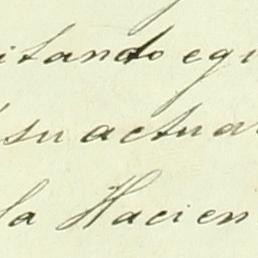 itando equ
su actua
la Hacien